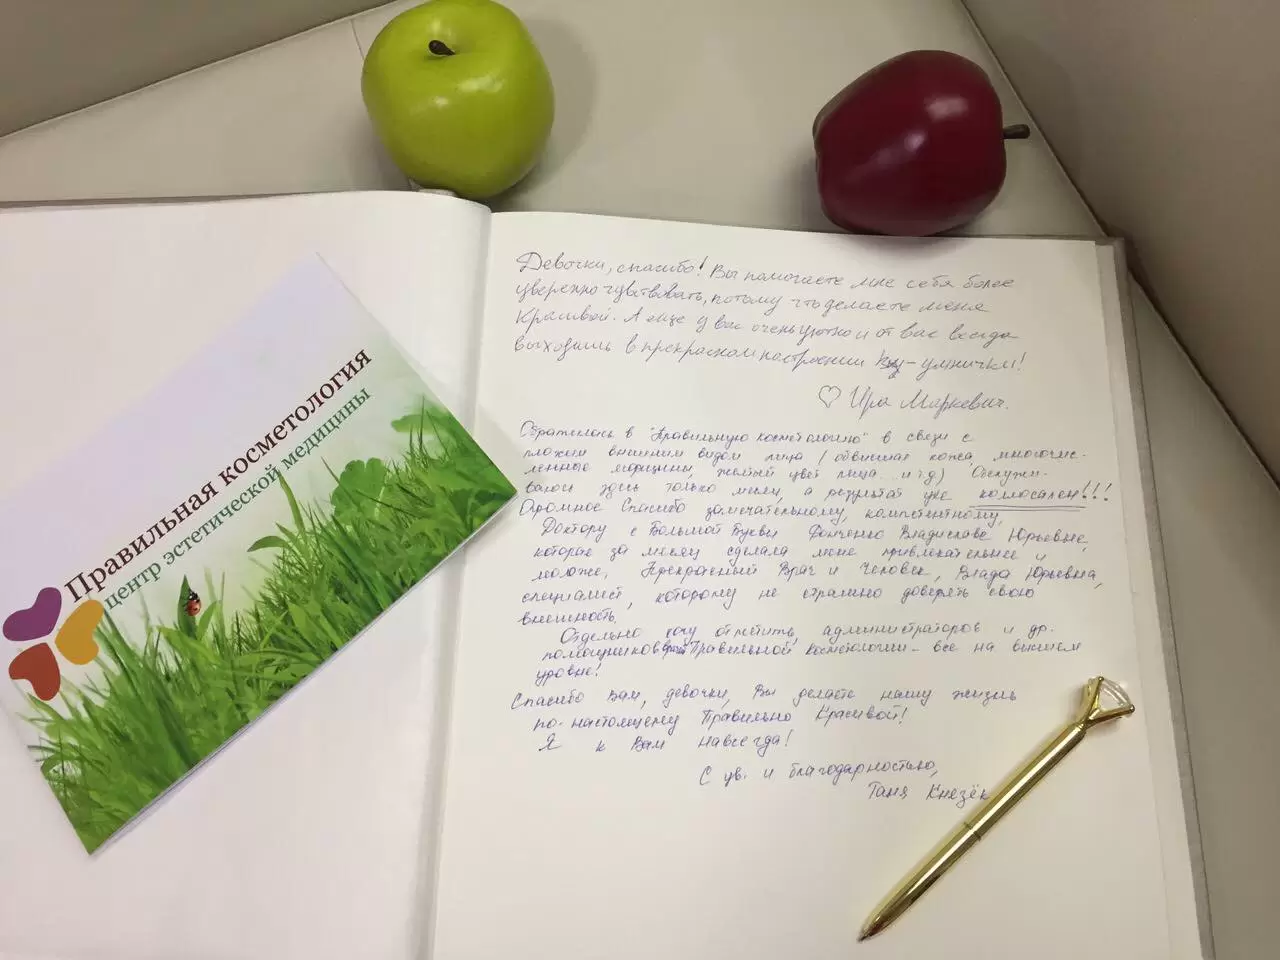 Правильная косметология
центр эстетической медицины
Девочки, спасибо! Вы помогаете мне себя более
уверенно чувствовать, потому что делаете меня
красивой. А еще у вас очень уютно и от вас всегда
выходишь в прекрасном настроении Вы - умнички!
♡ Ира Маркевич.
Обратилась в "Правильную косметологию" в связи с
плохим внешним видом лица (обвисшая кожа, многочис-
ленные морщины, желтый цвет лица ... и т.д) Обслужи-
валась здесь только месяц, а результат уже колоссален!!!
Огромное Спасибо замечательному, компетентному,
Доктору с Большой Буквы Владиславе Юрьевне,
которая за месяц сделала меня привлекательнее и
моложе. Прекрасный Врач и Человек, Влада Юрьевна,
специалист, которому не страшно доверять свою
внешность.
Отдельно хочу отметить, администраторов и др.
помощников врачей Правильной Косметологии - все на высшем
уровне!
Спасибо Вам, девочки, Вы делаете нашу жизнь
по-настоящему Правильно Красивой!
Я к Вам навсегда!
С ув. и благодарностью,
Таня Князёк